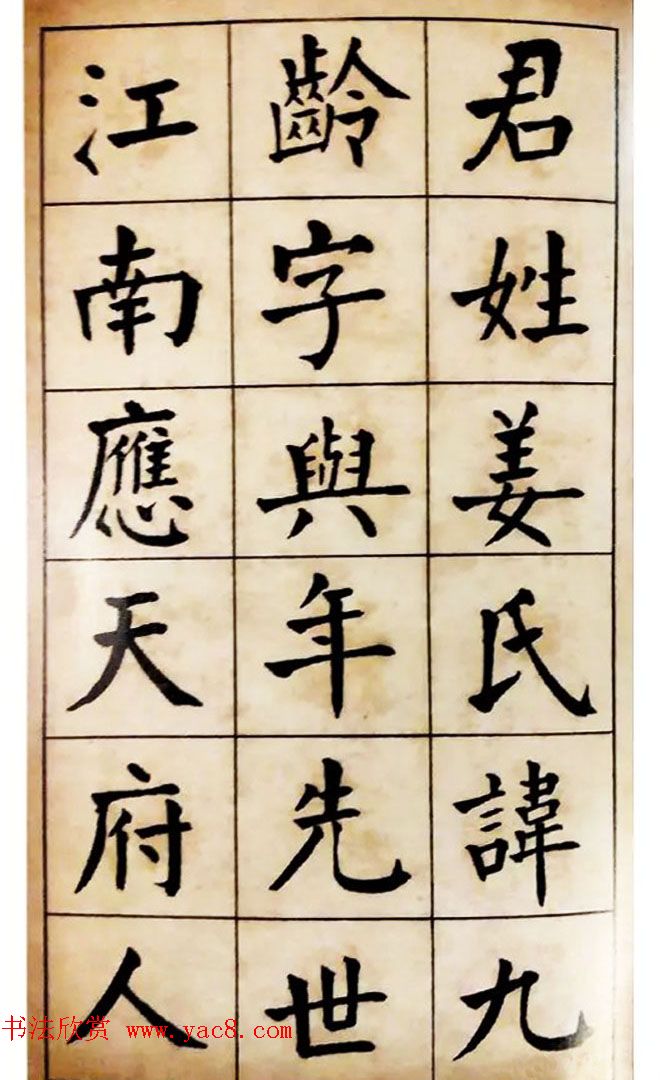 君姓姜氏諱九
齡字與年先世
江南應天府人
书法欣赏 www.yac8.com